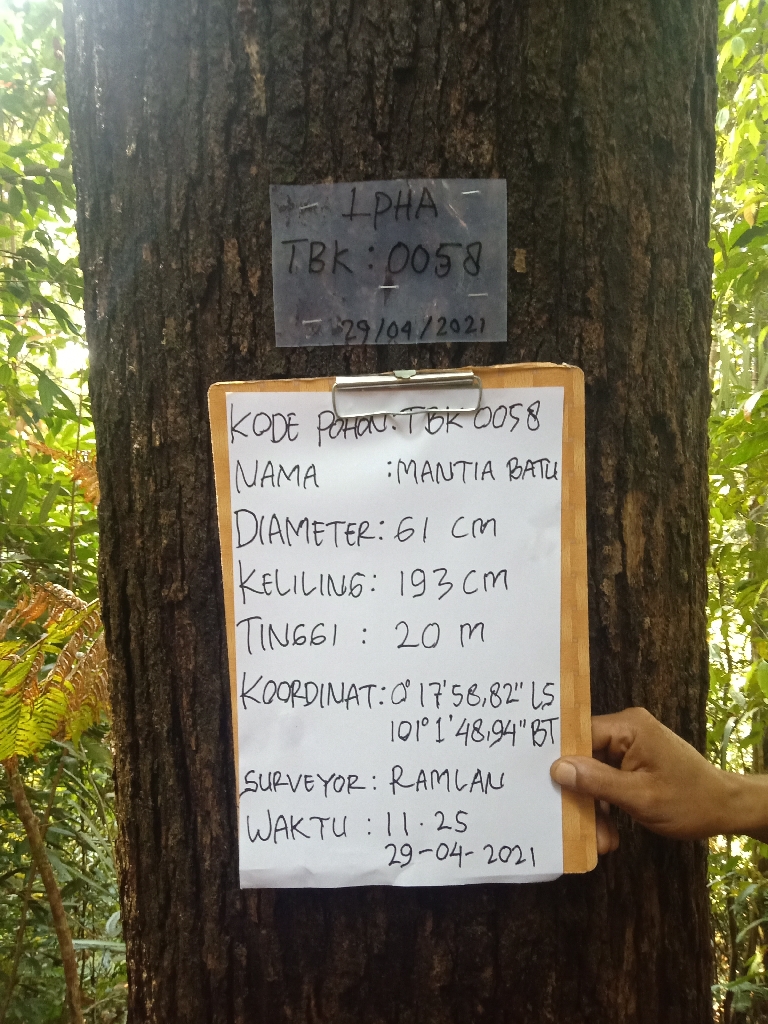 LPHA
TBK : 0058
29/04/2021
KODE POHON : TBK 0058
NAMA : MANTIA BATU
DIAMETER : 61 CM
KELILING : 193 CM
TINGGI : 20 M
KOORDINAT : 0° 17' 58,82" LS
101° 1' 48,94" BT
SURVEYOR : RAMLAN
WAKTU : 11.25
29-04-2021